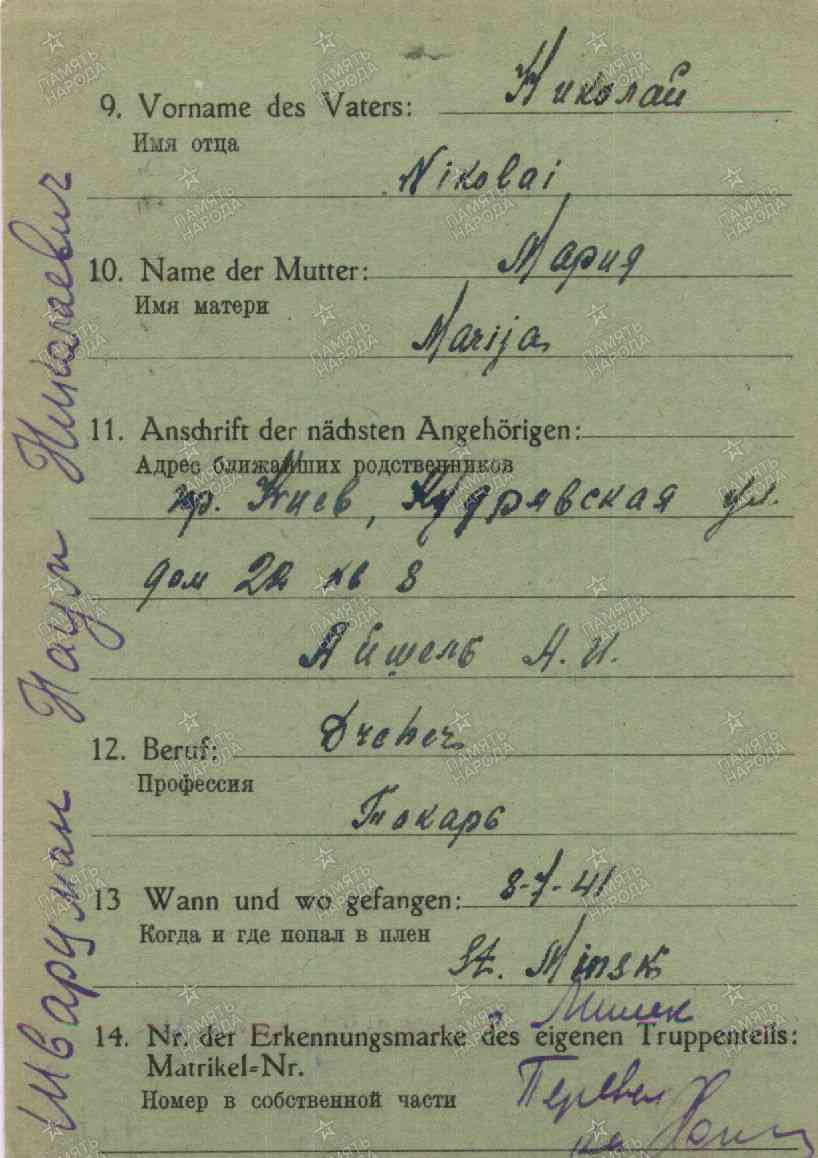 9. Vorname des Vaters: Николай
Имя отца
Nikolai
10. Name der Mutter: Мария
Имя матери
Marija
11. Anschrift der nächsten Angehörigen:
Адрес ближайших родственников
гор. Киев, Кудрявская ул.
дом 22 кв 8
Айшель А. И.
12. Beruf: Dreher
Профессия
Токарь
13 Wann und wo gefangen: 8-7-41
Когда и где попал в плен
St. Minsk
Минск
14. Nr. der Erkennungsmarke des eigenen Truppenteils:
Matrikel=Nr.
Номер в собственной части
Перевел
Николаевич
ПАМЯТЬ НАРОДА